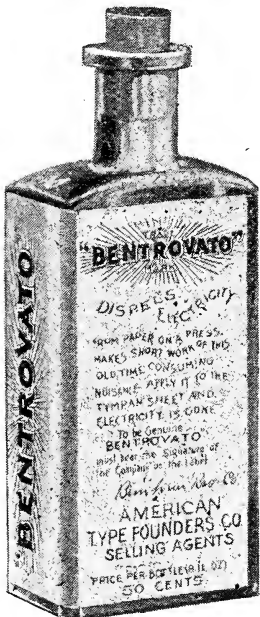 TRADE
"BENTROVATO"
MARK
DISPELS
ELECTRICITY
FROM PAPER ON A PRESS.
MAKES SHORT WORK OF THIS
OLD TIME CONSUMING
NUISANCE APPLY IT TO THE
TYMPAN SHEET AND
ELECTRICITY IS GONE
To be Genuine
"BENTROVATO"
must bear the Signature of
the Company on the Label
AMERICAN
TYPE FOUNDERS CO.
SELLING AGENTS
PRICE PER BOTTLE (8 FL. OZ)
50 CENTS.
"BENTROVATO"